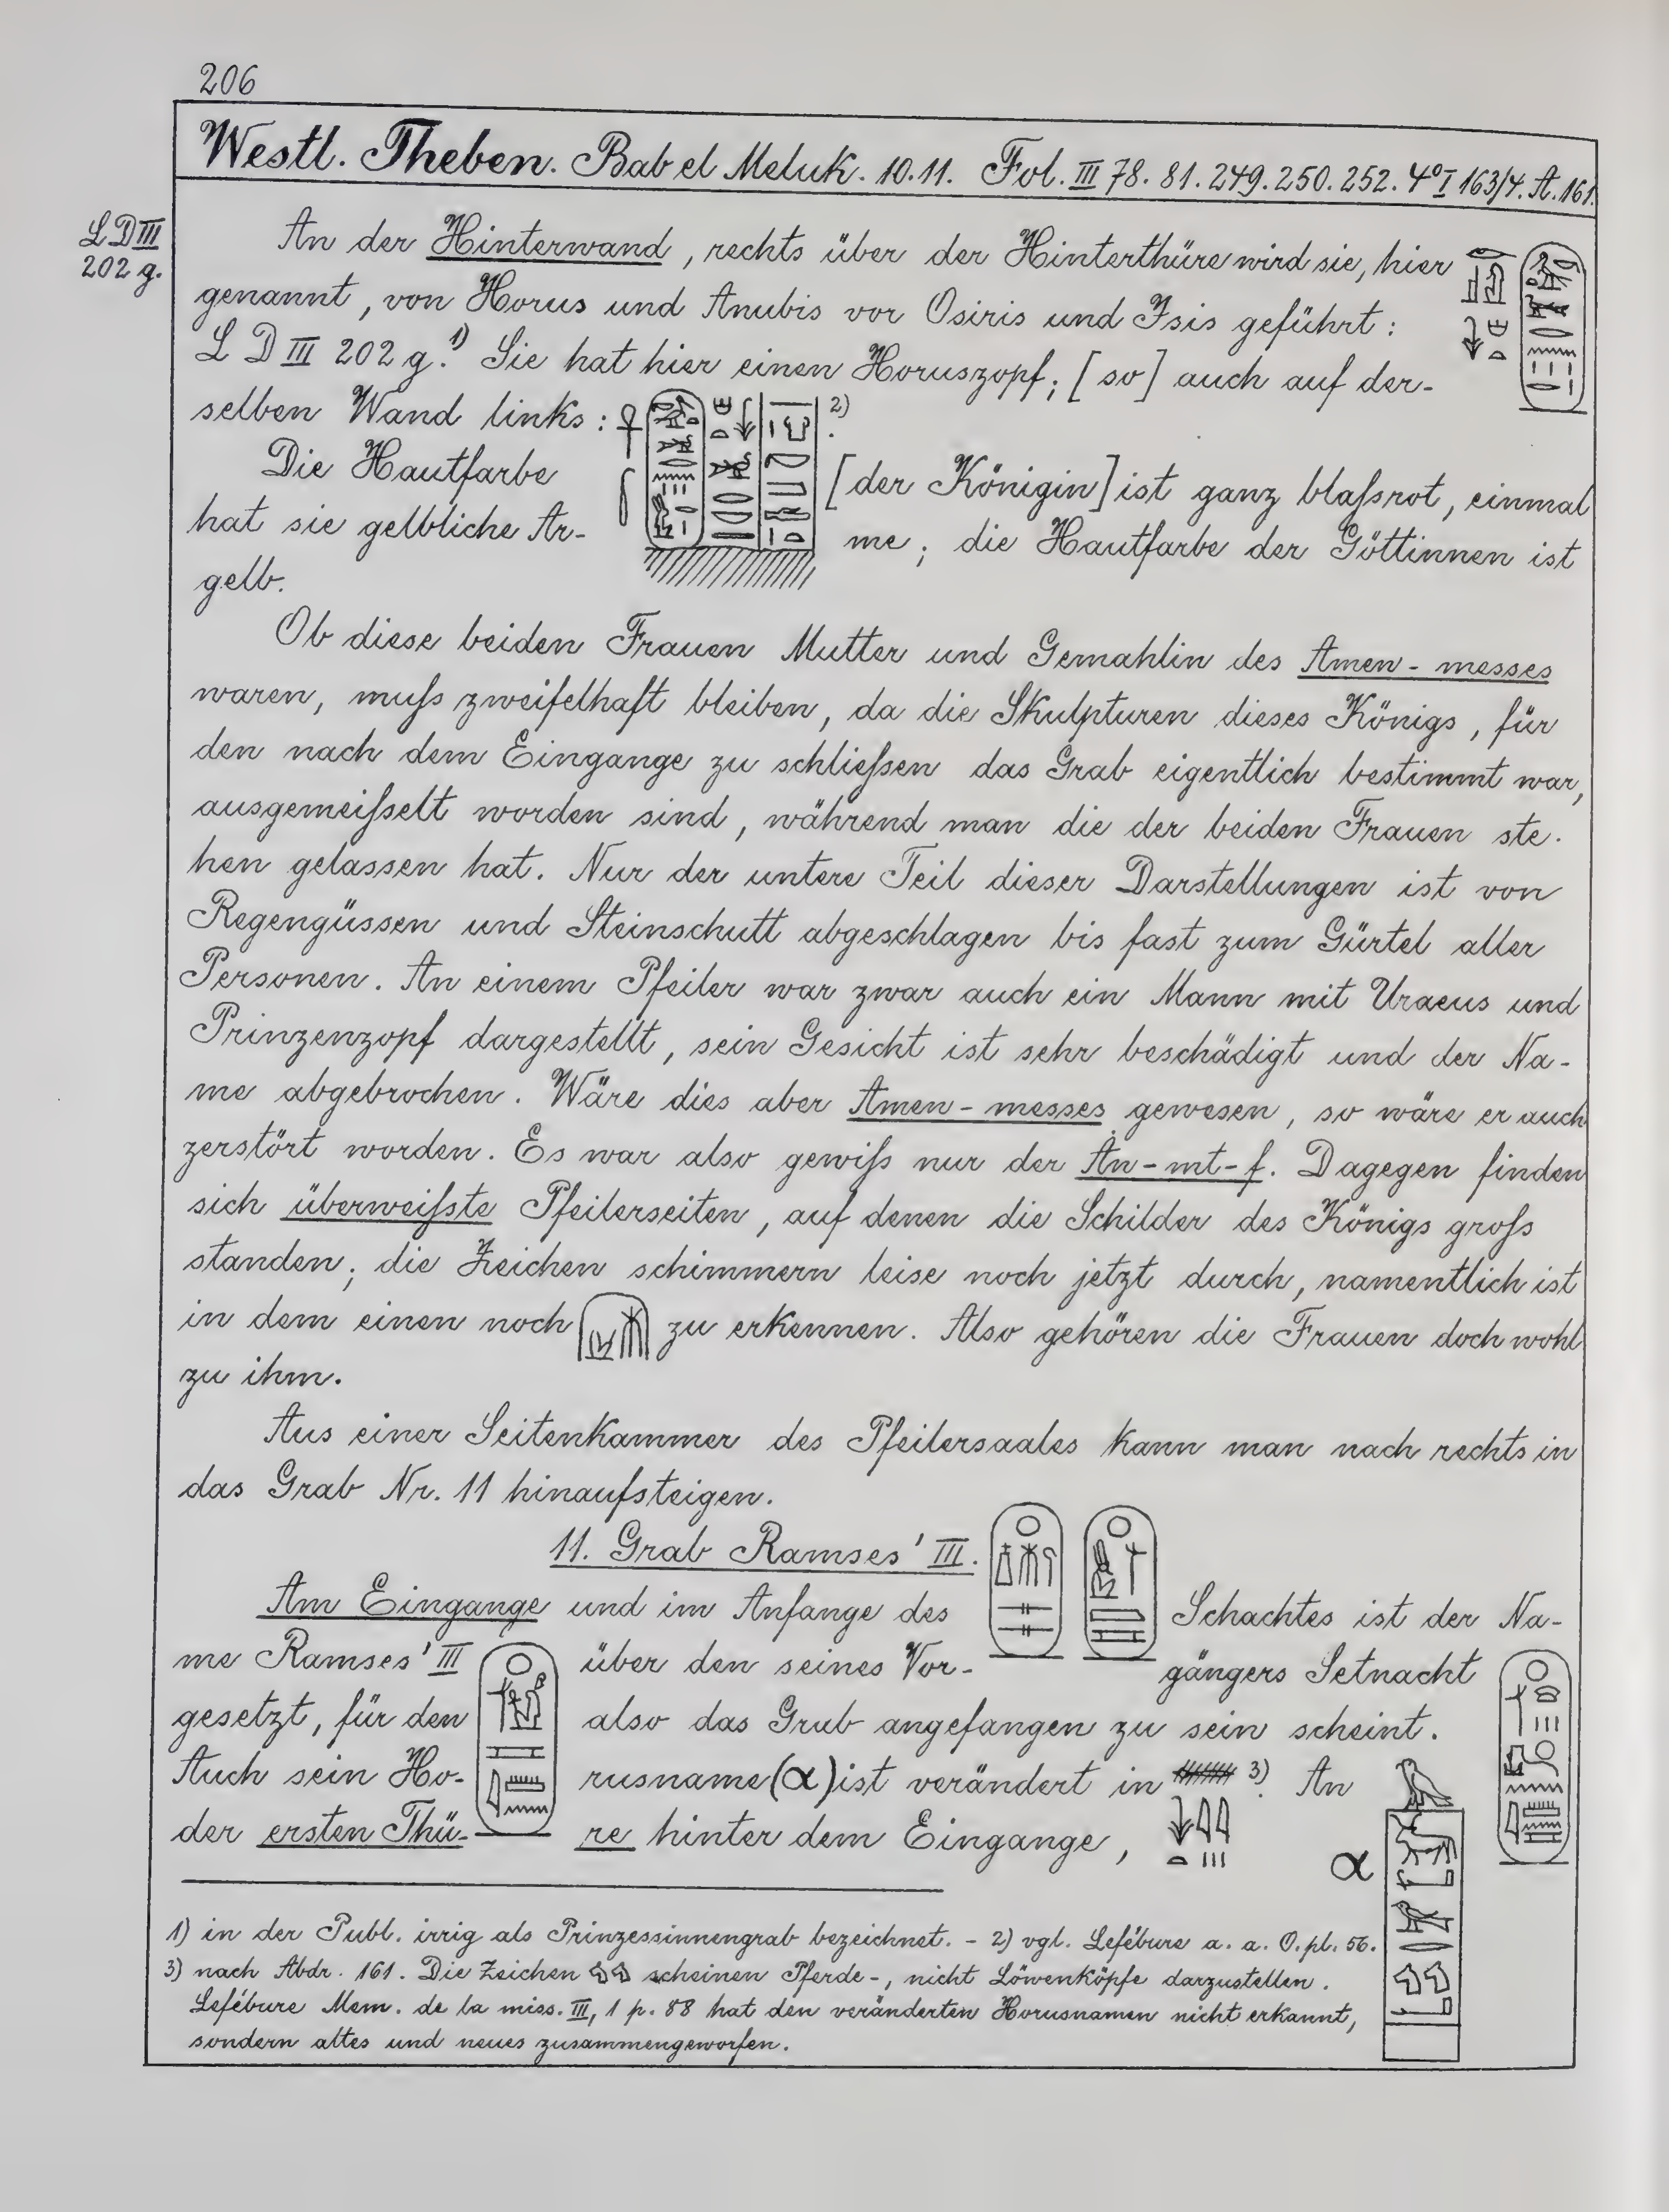 206
Westl. Theben. Bab el Meluk. 10.11. Fol. III 78. 81. 249. 250. 252. 4º I 163/4. A. 161.
LD III
202 g.
An der Hinterwand, rechts über der Hinterthüre wird sie, hier
genannt, von Horus und Anubis vor Osiris und Isis geführt:
L D III 202 g. 1) Sie hat hier einen Horuszopf; [so] auch auf der-
selben Wand links: 2)
Die Hautfarbe [der Königin] ist ganz blaſsrot, einmal
hat sie gelbliche Ar- me; die Hautfarbe der Göttinnen ist
gelb.
Ob diese beiden Frauen Mutter und Gemahlin des Amen-messes
waren, muſs zweifelhaft bleiben, da die Skulpturen dieses Königs, für
den nach dem Eingange zu schlieſsen das Grab eigentlich bestimmt war,
ausgemeiſselt worden sind, während man die der beiden Frauen ste-
hen gelassen hat. Nur der untere Teil dieser Darstellungen ist von
Regengüssen und Steinschutt abgeschlagen bis fast zum Gürtel aller
Personen. An einem Pfeiler war zwar auch ein Mann mit Uraeus und
Prinzenzopf dargestellt, sein Gesicht ist sehr beschädigt und der Na-
me abgebrochen. Wäre dies aber Amen-messes gewesen, so wäre er auch
zerstört worden. Es war also gewiſs nur der An-mt-f. Dagegen finden
sich überweiſste Pfeilerseiten, auf denen die Schilder des Königs groſs
standen; die Zeichen schimmern leise noch jetzt durch, namentlich ist
in dem einen noch zu erkennen. Also gehören die Frauen doch wohl
zu ihm.
Aus einer Seitenkammer des Pfeilersaales kann man nach rechts in
das Grab Nr. 11 hinaufsteigen.
11. Grab Ramses' III.
Am Eingange und im Anfange des Schachtes ist der Na-
me Ramses' III über den seines Vor- gängers Setnacht
gesetzt, für den also das Grab angefangen zu sein scheint.
Auch sein Ho- rusname (α) ist verändert in 3) An
der ersten Thü- re hinter dem Eingange,
α
1) in der Publ. irrig als Prinzessinnengrab bezeichnet. - 2) vgl. Lefébure a. a. O. pl. 56.
3) nach Abdr. 161. Die Zeichen scheinen Pferde-, nicht Löwenköpfe darzustellen.
Lefébure Mem. de la miss. III, 1 p. 88 hat den veränderten Horusnamen nicht erkannt,
sondern altes und neues zusammengeworfen.